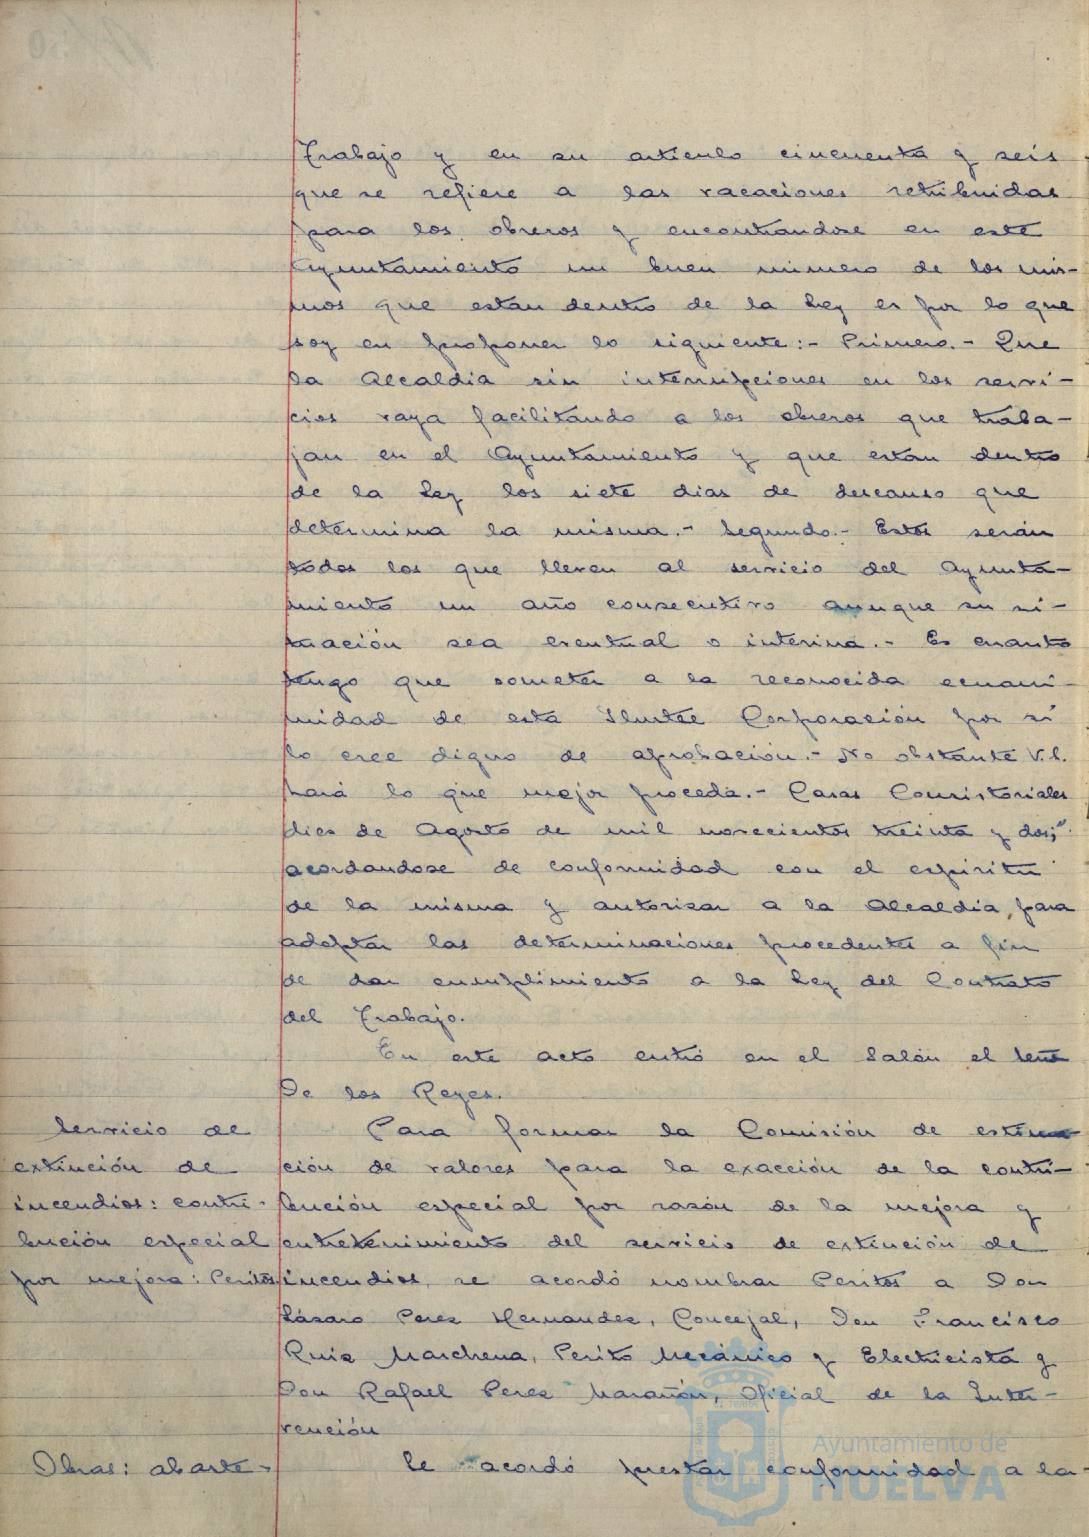 Trabajo y en su articulo cincuenta y seis
que se refiere a las vacaciones retribuidas
para los obreros y encontrandose en este
Ayuntamiento un buen número de los mis-
mos que estan dentro de la Ley es por lo que
soy en proponer lo siguiente:- Primero.- Que
la Alcaldia sin interrupciones en los servi-
cios vaya facilitando a los obreros que traba-
jan en el Ayuntamiento y que estan dentro
de la Ley los siete dias de descanso que
determina la misma.- Segundo.- Estos serán
todos los que lleven al servicio del Ayunta-
miento un año consecutivo aunque su si-
tuación sea eventual o interina.- Es cuanto
tengo que someter a la reconocida ecuani-
midad de esta Ilustre Corporación por si
lo cree digno de aprobación.- No obstante V.S.
hará lo que mejor proceda.- Casas Consistoriales
diez de Agosto de mil novecientos treinta y dos;"
acordandose de conformidad con el espiritu
de la misma y autorizar a la Alcaldia, para
adoptar las determinaciones procedentes a fin
de dar cumplimiento a la Ley del Contrato
del Trabajo.
En este acto entró en el Salón el Señor
De los Reyes.
Servicio de
extinción de
incendios: contri-
bución especial
por mejora: Peritos
Para formar la Comisión de estima
ción de valores para la exacción de la contri-
bución especial por razón de la mejora y
entretenimiento del servicio de extinción de
incendios, se acordó nombrar Peritos a Don
Lázaro Perez Hernandez, Concejal, Don Francisco
Ruiz Marchena, Perito Mecánico y Electricista y
Don Rafael Perez Marañón, Oficial de la Inter-
vención
Obras: abaste-
Se acordó prestar conformidad a la
Ayuntamiento de
HUELVA